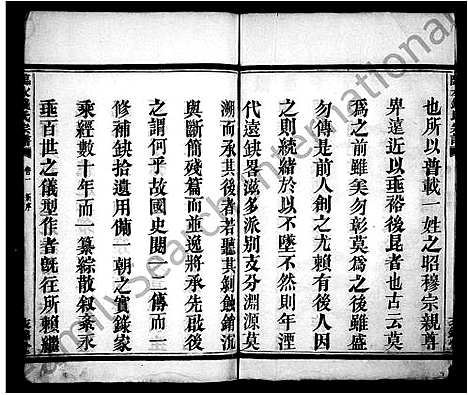 也所以普載一姓之昭穆宗親尊
界遠近以垂裕後昆者也古云莫
為之前雖美勿彰莫為之後雖盛
勿傳是前人創之尤賴有後人因
之則統緒於以不墜不然則年湮
代遠缺畧滋多派別支分淵源莫
溯而承其後者若聽其剝蝕銷沉
與斷簡殘篇而並逸將承先啟後
之謂何乎故國史閱一二傳而一
修補缺拾遺用備一朝之實錄家
乘經數十年而一纂綜散叙紊永
垂百世之儀型作者旣往所賴繼
卷一
familysearch international